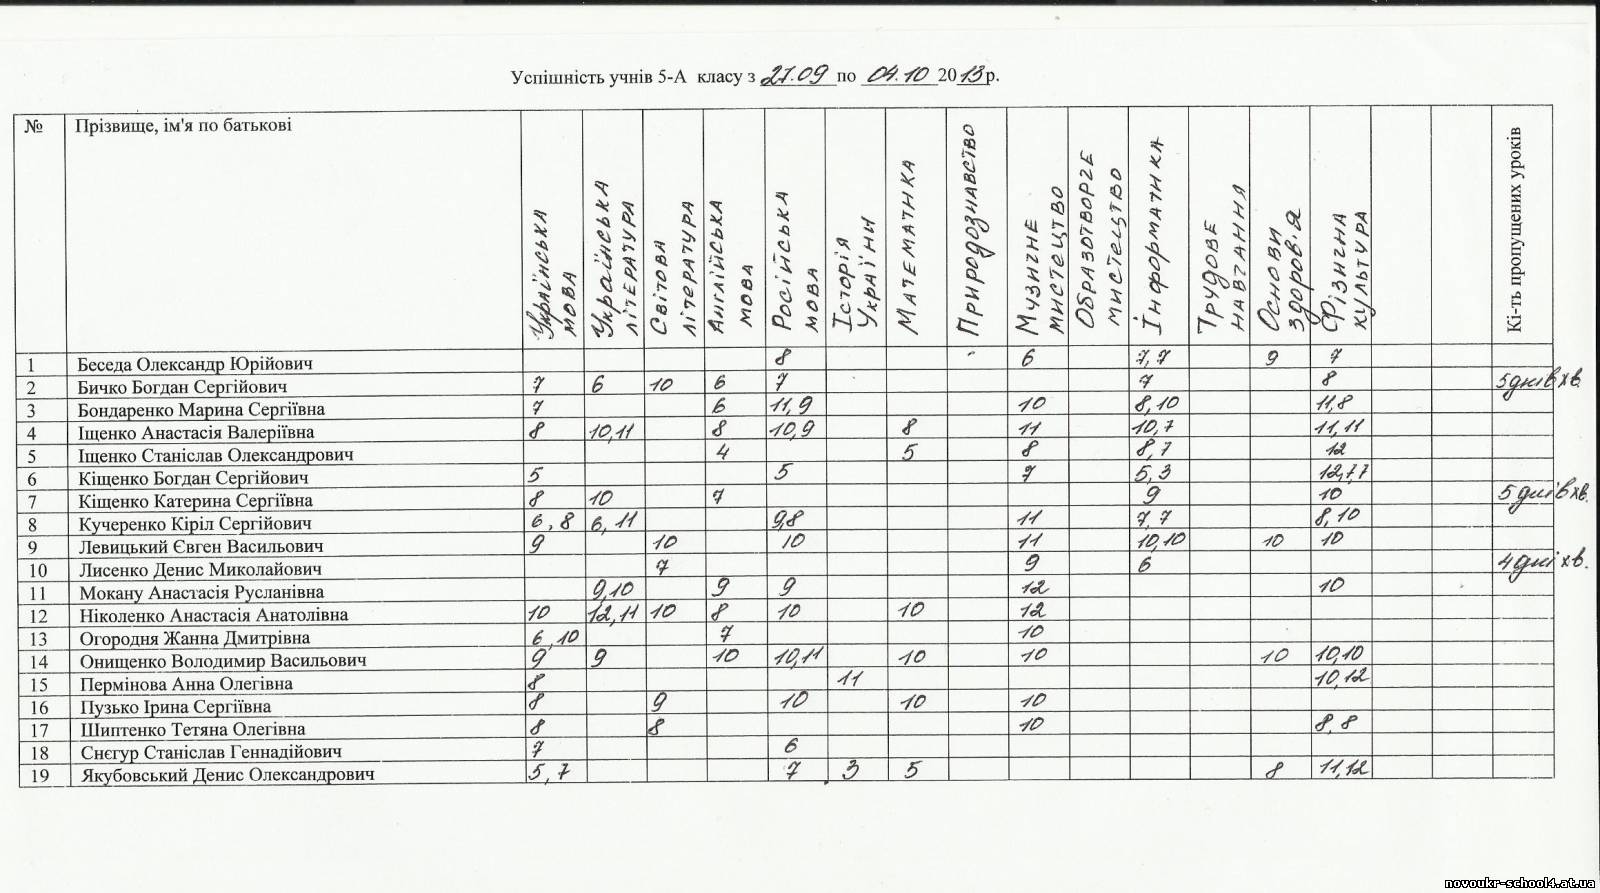 Успішність учнів 5-А класу з 27.09 по 04.10 2013р.
№ Прізвище, ім'я по батькові Українська мова Українська література Світова література Англійська мова Російська мова Історія України Математика Природознавство Музичне мистецтво Образотворче мистецтво Інформатика Трудове навчання Основи здоров'я Фізична культура Кі-ть пропущених уроків
1 Беседа Олександр Юрійович 8 6 7,7 9 7
2 Бичко Богдан Сергійович 7 6 10 6 7 7 8 5 днів хв.
3 Бондаренко Марина Сергіївна 7 6 11,9 10 8,10 11,8
4 Іщенко Анастасія Валеріївна 8 10,11 8 10,9 8 11 10,7 11,11
5 Іщенко Станіслав Олександрович 4 5 8 8,7 12
6 Кіщенко Богдан Сергійович 5 5 7 5,3 12,7,7
7 Кіщенко Катерина Сергіївна 8 10 7 9 10 5 днів хв.
8 Кучеренко Кіріл Сергійович 6,8 6,11 9,8 11 7,7 8,10
9 Левицький Євген Васильович 9 10 10 11 10,10 10 10
10 Лисенко Денис Миколайович 7 9 6 4 дні хв.
11 Мокану Анастасія Русланівна 9,10 9 9 12 10
12 Ніколенко Анастасія Анатолівна 10 12,11 10 8 10 10 12
13 Огородня Жанна Дмитрівна 6,10 7 10
14 Онищенко Володимир Васильович 9 9 10 10,11 10 10 10 10,10
15 Пермінова Анна Олегівна 8 11 10,12
16 Пузько Ірина Сергіївна 8 9 10 10 10
17 Шиптенко Тетяна Олегівна 8 8 10 8,8
18 Снєгур Станіслав Геннадійович 7 6
19 Якубовський Денис Олександрович 5,7 7 3 5 8 11,12
novoukr-school4.at.ua